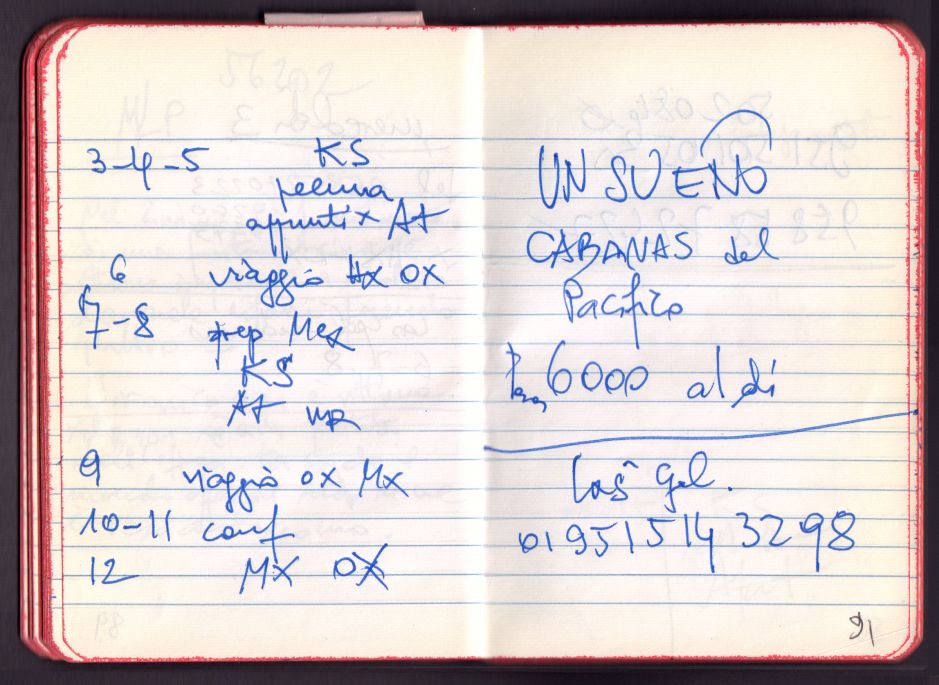 3-4-5 KS
appunti x At
6 viaggio Hx OX
7-8 prep Mex
KS
At
9 viaggio OX MX
10-11 conf
12 MX OX
UN SUENO
CABANAS del
Pacifico
6000 al dì
Gel.
01 951 514 3298
91